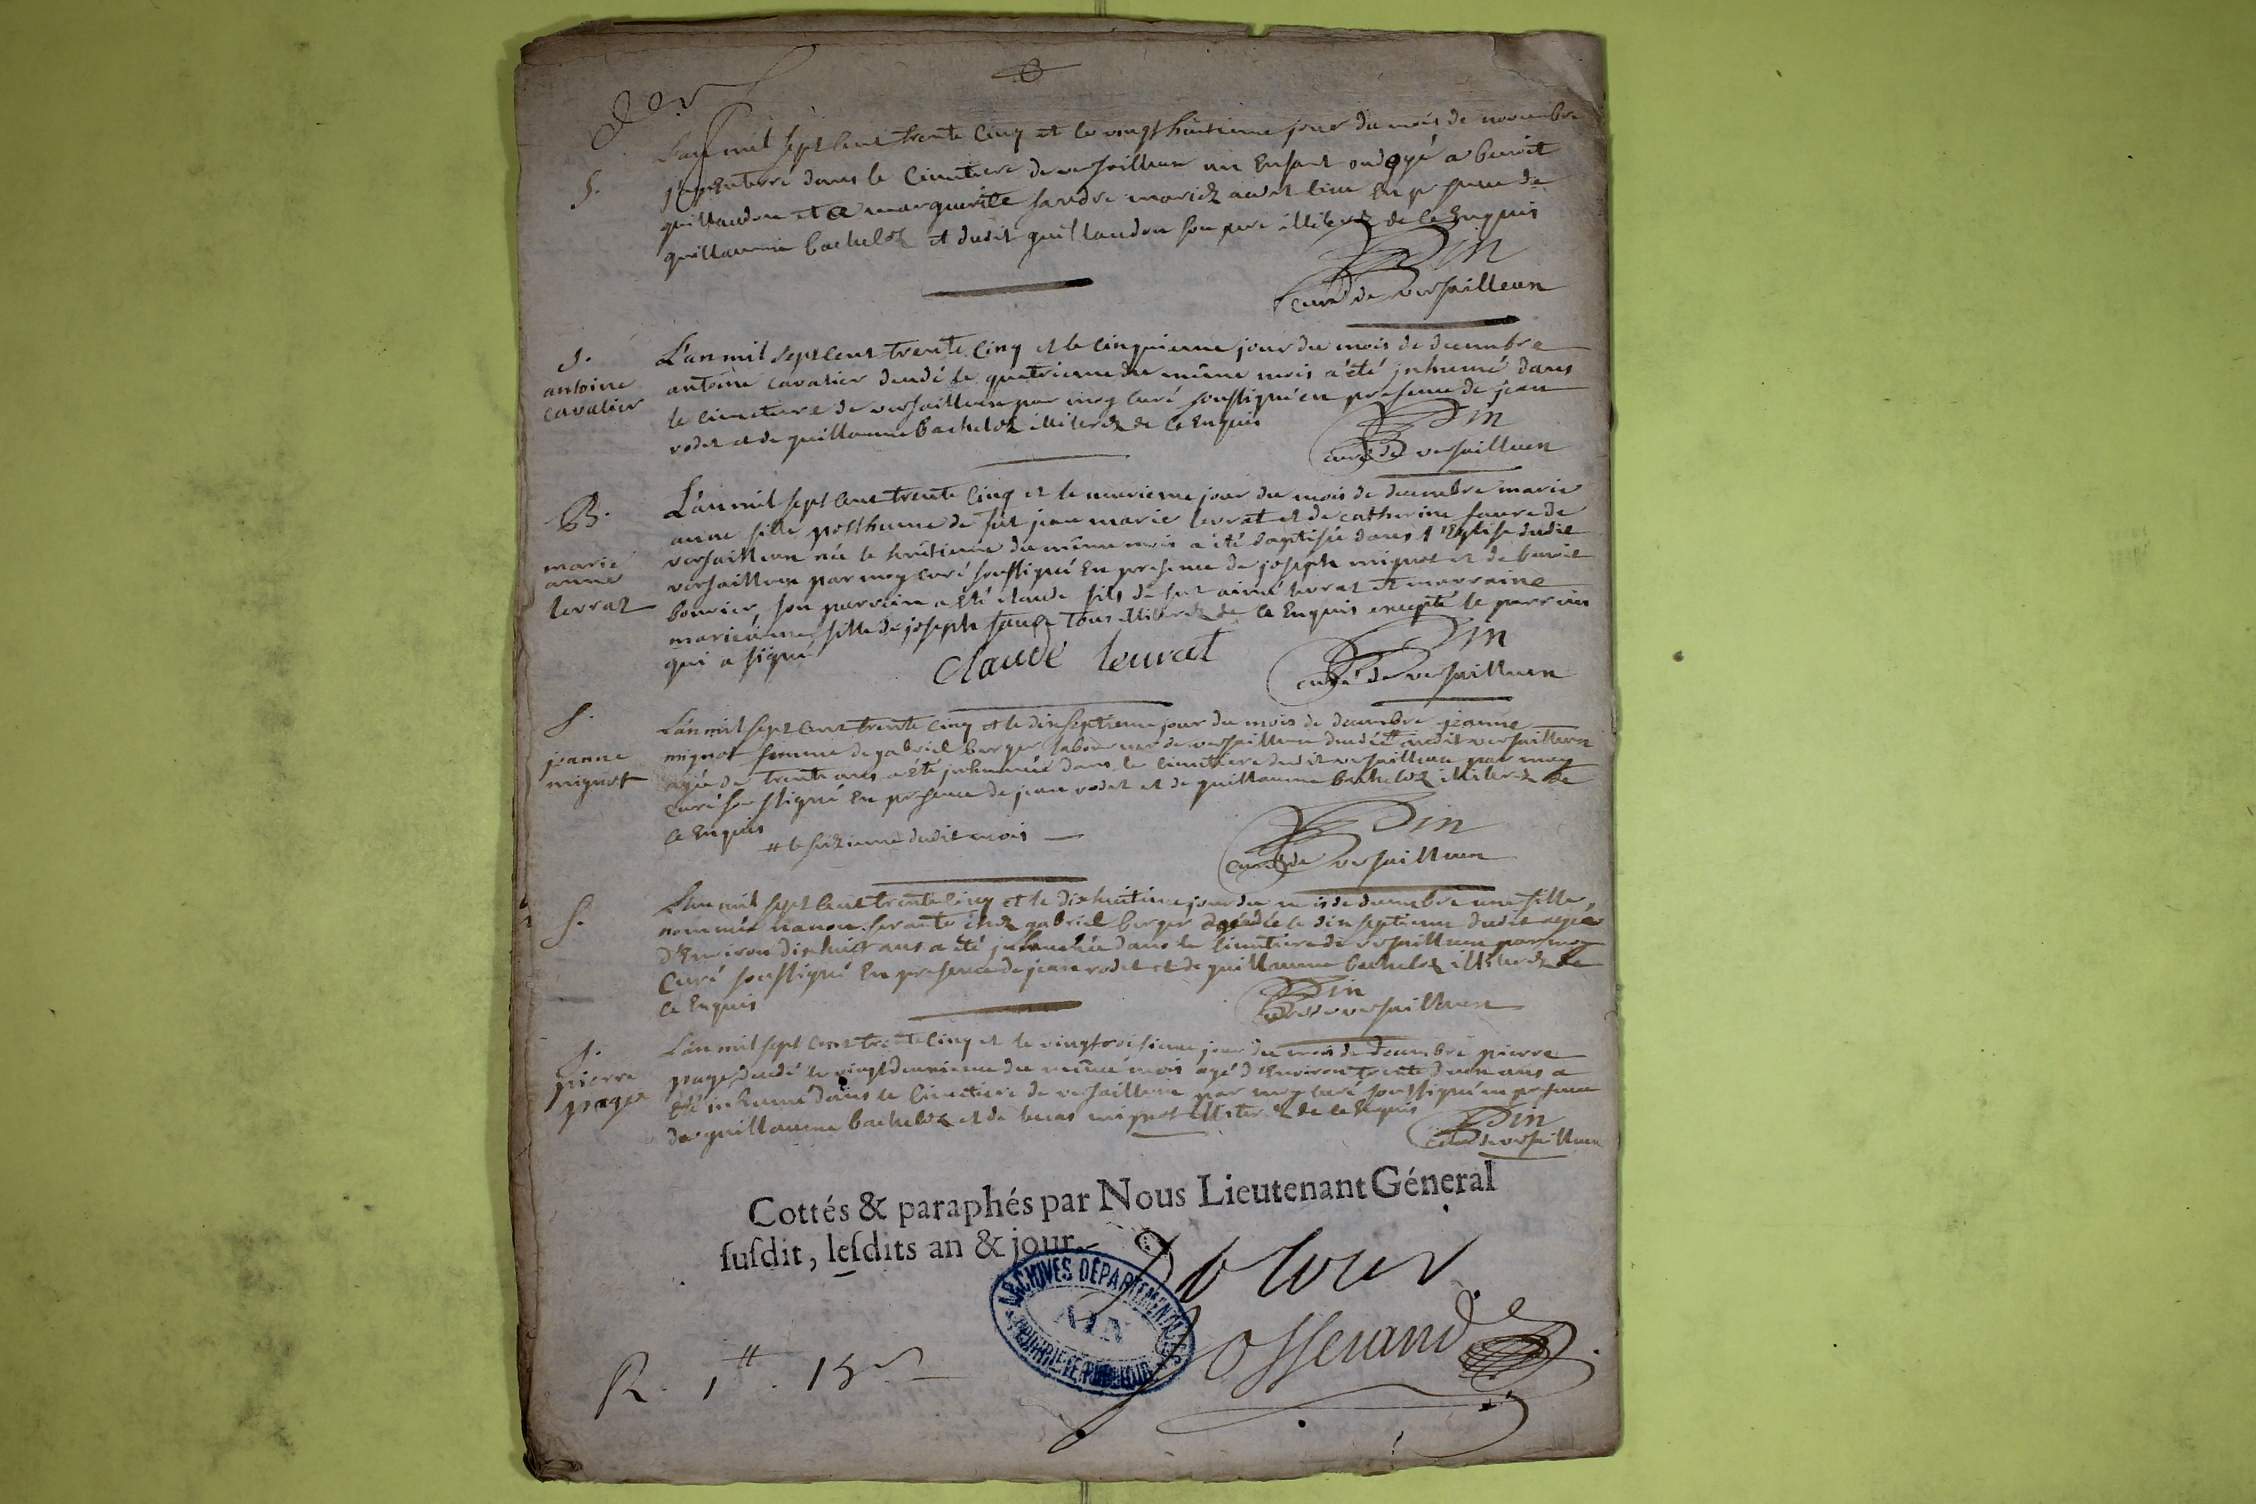 L'an mil sept cent trente cinq et le vingt huitieme jour du mois de novembre
S.
j'ay enterré dans le cimetiere de versailleux un enfant ondoyé a benoit
guillaudon et a marguerite sandre mariez audit lieu en presence de
guillaume bacheloz et dudit guillaudon son pere illiterez de ce enquis
Din
curé de versailleux
S.
antoine
cavalier
L'an mil sept cent trente cinq et le cinquieme jour du mois de decembre
antoine cavalier decedé le quatrieme du même mois a été inhumé dans
le cimetiere de versailleux par moy curé soussigné en presence de jean
rodet et de guillaume bacheloz illiterez de ce enquis
Din
curé de versailleux
B.
marie
anne
levrat
L'an mil sept cent trente cinq et le neuvieme jour du mois de decembre marie
anne fille posthume de fut jean marie levrat et de catherine faure de
versailleux née le huitieme du même mois a été baptisée dans l'Eglise dudit
versailleux par moy curé soussigné en presence de joseph mignot et de benoit
bouvier, son parrain a été claude fils de fut aimé levrat et marraine
marieanne fille de joseph faure tous illiterez de ce enquis excepté le parrain
qui a signé
claude leurat
Din
curé de versailleux
S.
jeanne
mignot
L'an mil sept cent trente cinq et le dixseptieme jour du mois de decembre jeanne
mignot femme de gabriel berger laboureur de versailleux decedée # audit versailleux
agée de trente ans a été inhumée dans le cimetiere dudit versailleux par moy
curé soussigné en presence de jean rodet et de guillaume bacheloz illiterez de
ce enquis
# le seizieme dudit mois
Din
curé de versailleux
S.
L'an mil sept cent trente cinq et le dixhuitieme jour du mois de decembre une fille
nommée nanon servante chez gabriel berger decedée le dixseptieme dudit agée
d'environ dixhuit ans a été inhumée dans le cimetiere de versailleux par moy
curé soussigné en presence de jean rodet et de guillaume bacheloz illiterez de
ce enquis
Din
curé de versailleux
S.
pierre
page
L'an mil sept cent trente cinq et le vingt troisieme jour du mois de decembre pierre
page decedé le vingtdeuxieme du même mois agé d'environ trente deux ans a
été inhumé dans le cimetiere de versailleux par moy curé soussigné en presence
de guillaume bacheloz et de lucas mignot illiterez de ce enquis
Din
curé de versailleux
Cottés & paraphés par Nous Lieutenant Géneral
susdit, lesdits an & jour.
ARCHIVES DÉPARTEMENTALES
AIN
PROPRIÉTÉ PUBLIQUE
Josserand
R. 1# . 15